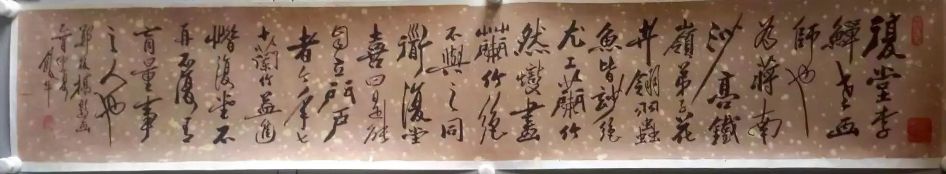 復堂李
鱓老畫
師也
為蔣南
沙高鐵
嶺弟子花
卉翎羽蟲
魚皆妙絕
尤工蘭竹
然燮畫
蘭竹絕
不與之同
衜復堂
喜曰是能
自立門戶
者今年七
十蘭竹益進
惜復堂不
再不復有
商量事
之人也
鄭板橋題畫